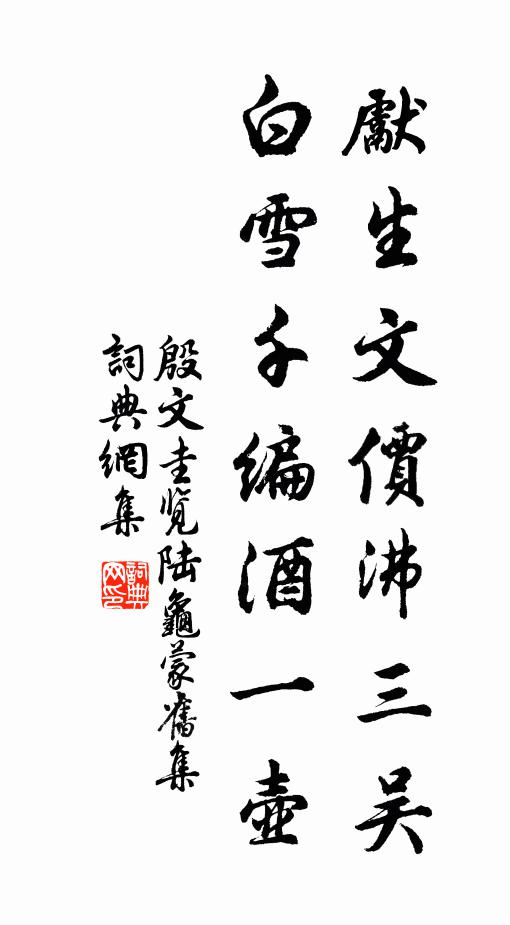 獻生文價沸三吴
白雪千编酒一壺
殷文圭览陆龜蒙舊集
詞典網集
詞典网印